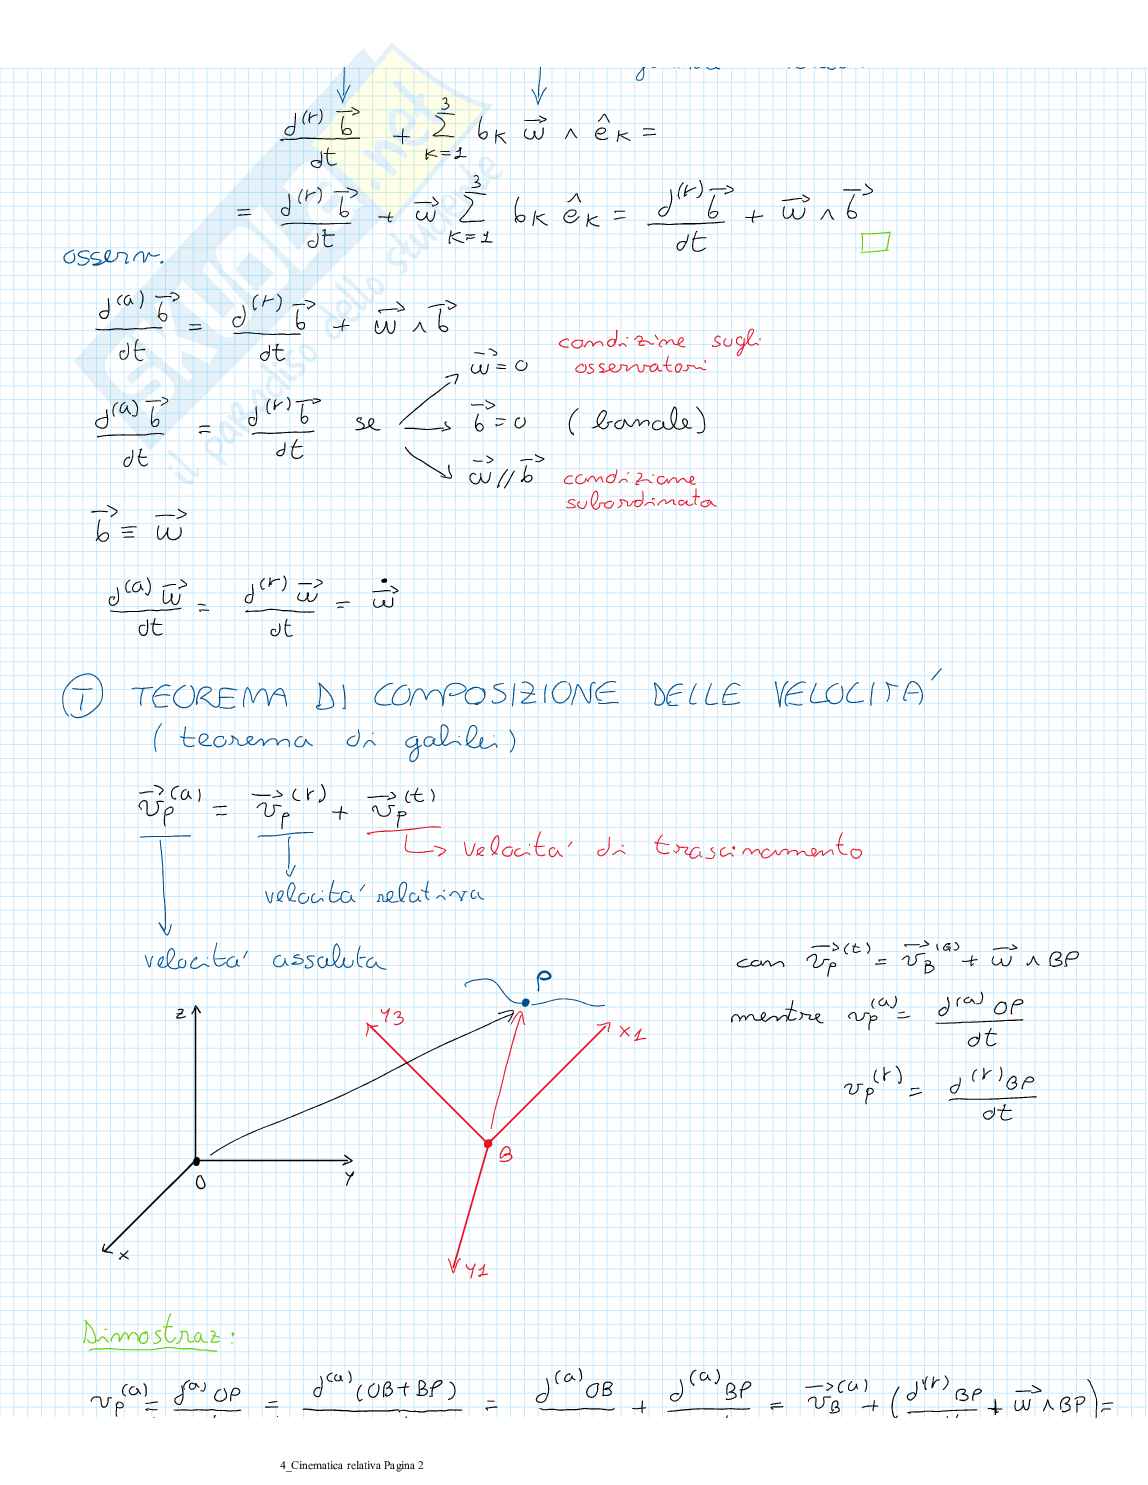 d^(r) b⃗ / dt + Σ_{K=1}^{3} b_K ω⃗ ∧ ê_K =
= d^(r) b⃗ / dt + ω⃗ Σ_{K=1}^{3} b_K ê_K = d^(r) b⃗ / dt + ω⃗ ∧ b⃗
osserv.
d^(a) b⃗ / dt = d^(r) b⃗ / dt + ω⃗ ∧ b⃗
ω⃗ = 0 condizione sugli osservatori
d^(a) b⃗ / dt = d^(r) b⃗ / dt se b⃗ = 0 (banale)
ω⃗ // b⃗ condizione subordinata
b⃗ ≡ ω⃗
d^(a) ω⃗ / dt = d^(r) ω⃗ / dt = ω⃗̇
T TEOREMA DI COMPOSIZIONE DELLE VELOCITA'
(teorema di galilei)
v⃗_P^(a) = v⃗_P^(r) + v⃗_P^(t)
velocita' di trascinamento
velocita' relativa
velocita' assoluta
con v⃗_P^(t) = v⃗_B^(a) + ω⃗ ∧ BP
mentre v_P^(a) = d^(a) OP / dt
v_P^(r) = d^(r) BP / dt
P
z
y3
x1
B
O
y
x
y1
Dimostraz:
v_P^(a) = d^(a) OP = d^(a) (OB + BP) = d^(a) OB + d^(a) BP = v⃗_B^(a) + (d^(r) BP + ω⃗ ∧ BP) =
SKUOLA.net
il paradiso dello studente
4_Cinematica relativa Pagina 2